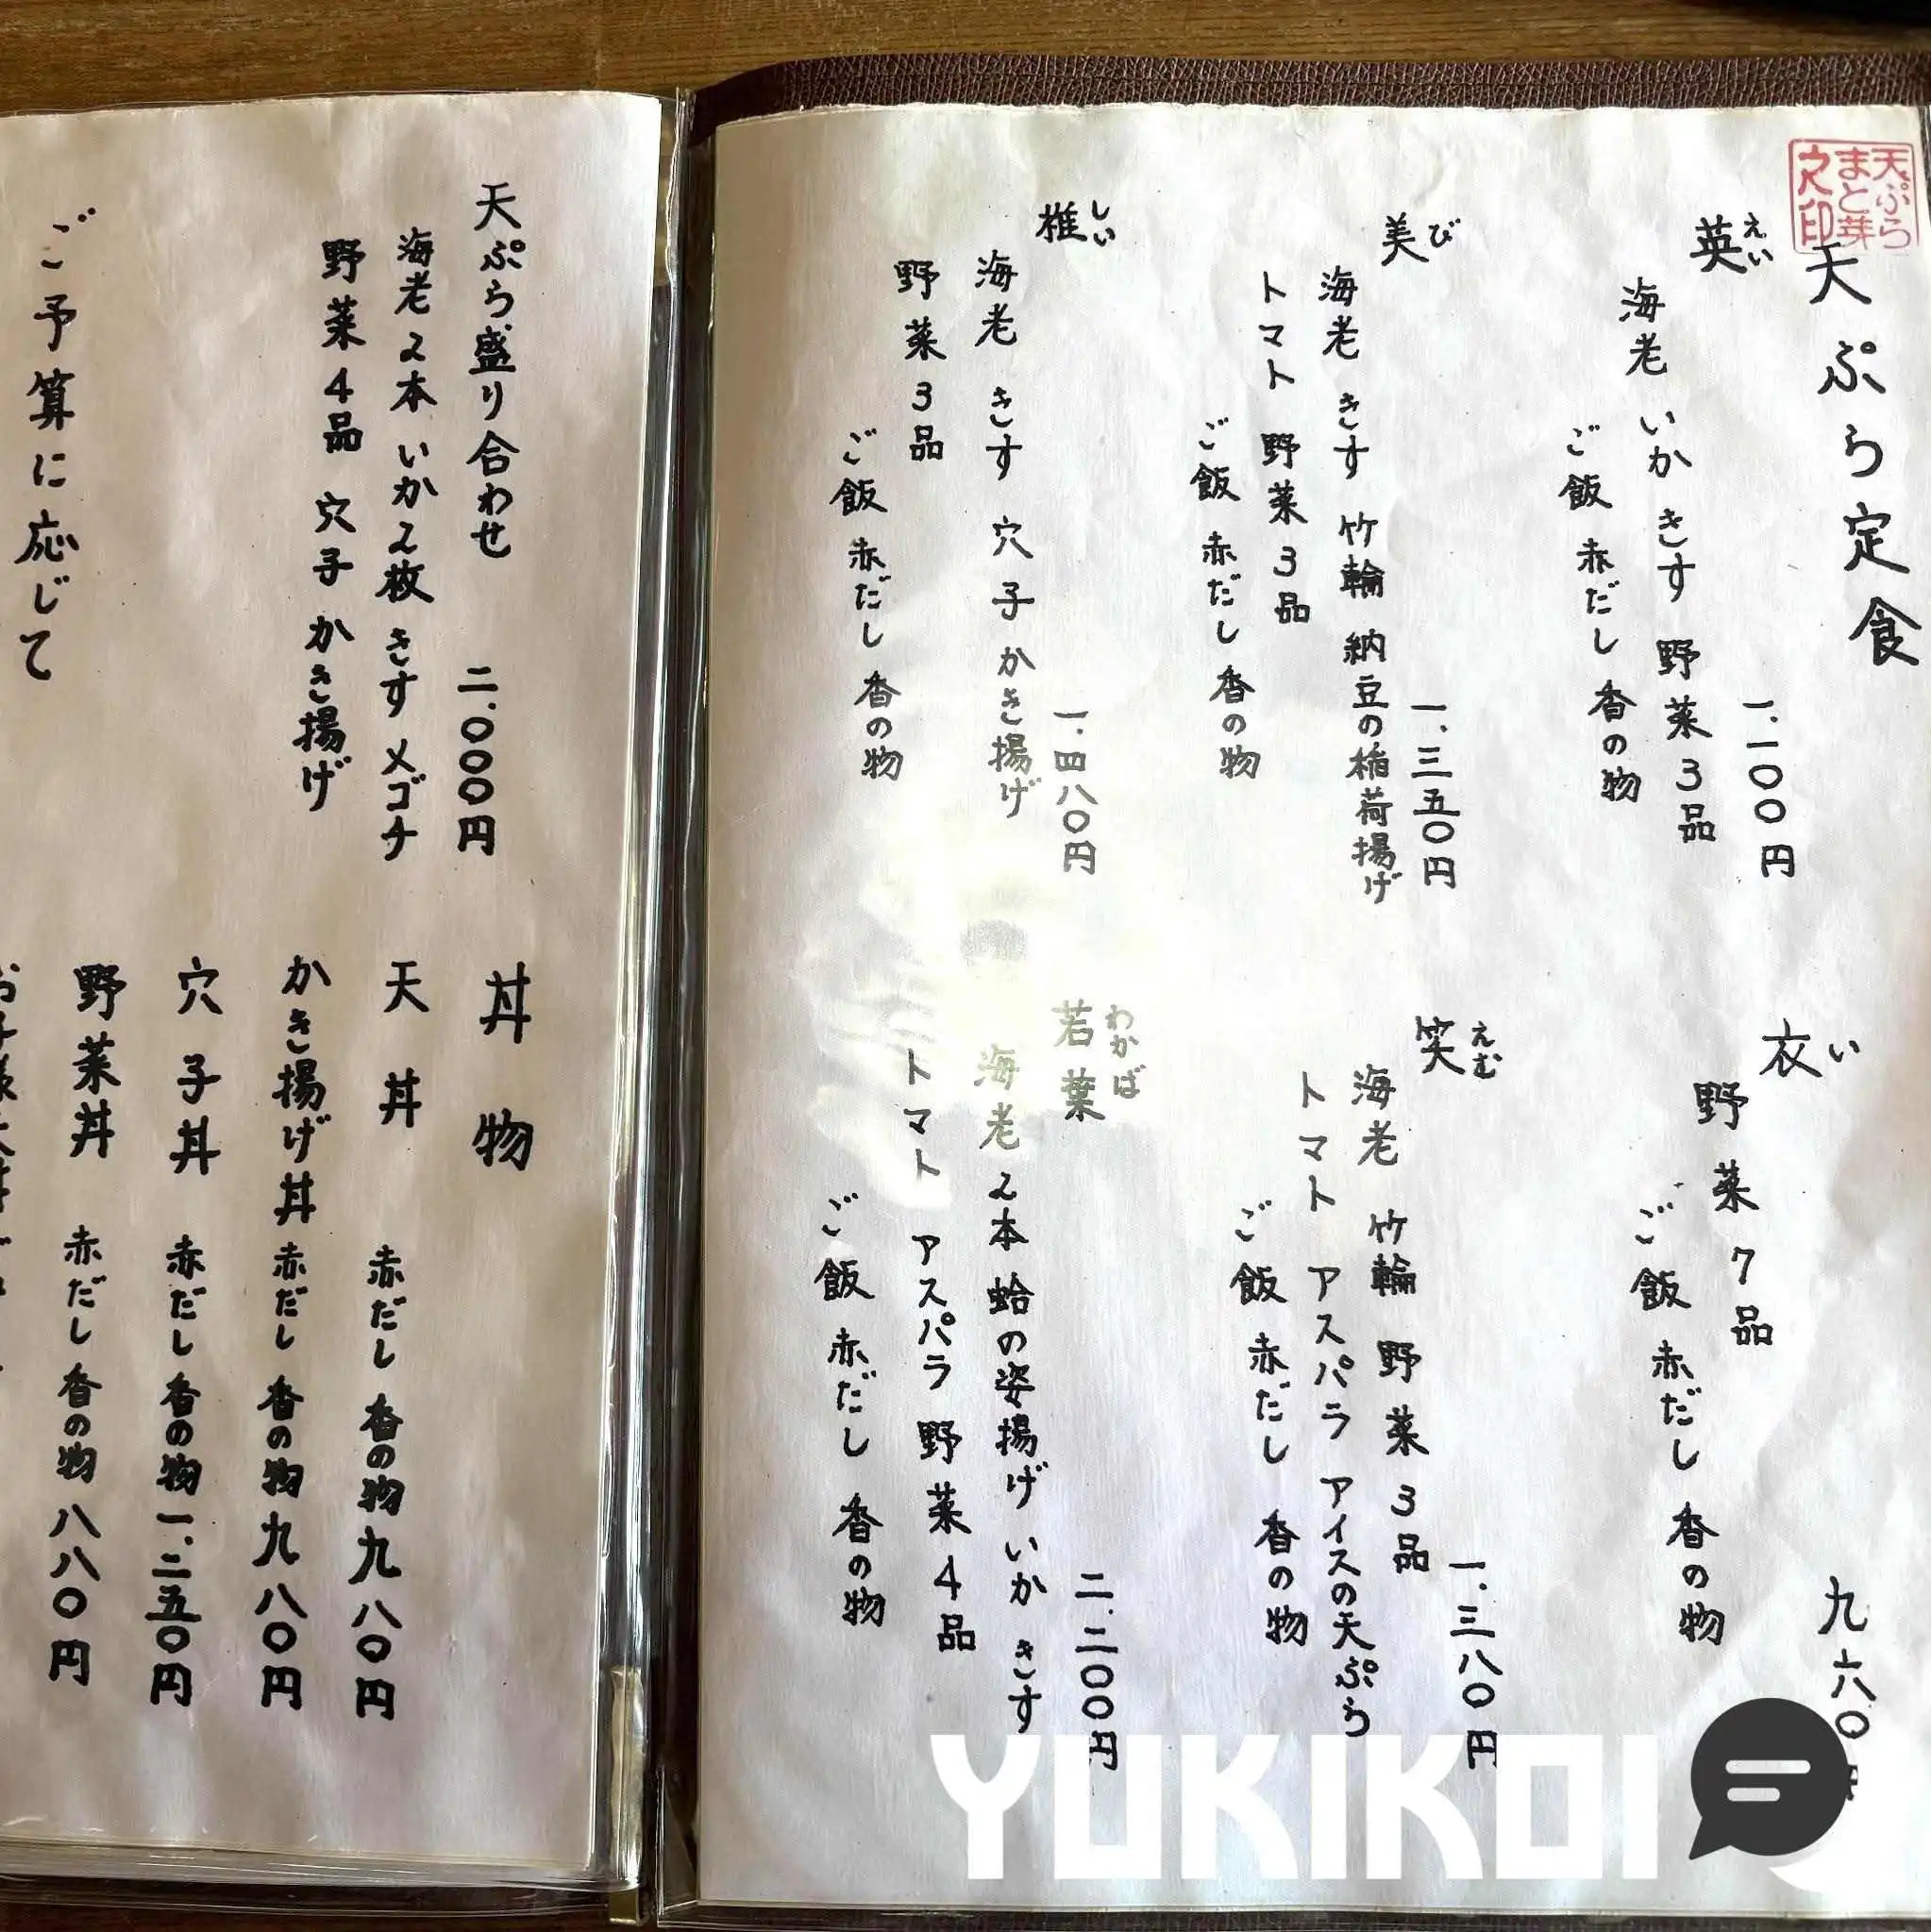 天ぷら
まと芽
之印
天ぷら定食
英 えい
一.一〇〇円
海老 いか きす 野菜3品
ご飯 赤だし 香の物
美 び
一.三五〇円
海老 きす 竹輪 納豆の稲荷揚げ
トマト 野菜3品
ご飯 赤だし 香の物
椎 しい
一.四八〇円
海老 きす 穴子 かき揚げ
野菜3品
ご飯 赤だし 香の物
衣 い
九六〇円
野菜7品
ご飯 赤だし 香の物
笑 えむ
一.三八〇円
海老 竹輪 野菜3品
トマト アスパラ アイスの天ぷら
ご飯 赤だし 香の物
若葉 わかば
二.二〇〇円
海老2本 蛤の姿揚げ いか きす
トマト アスパラ 野菜4品
ご飯 赤だし 香の物
天ぷら盛り合わせ 二.〇〇〇円
海老2本 いか2枚 きす メゴチ
野菜4品 穴子 かき揚げ
ご予算に応じて
丼物
天丼 赤だし 香の物 九八〇円
かき揚げ丼 赤だし 香の物 九八〇円
穴子丼 赤だし 香の物 一.二五〇円
野菜丼 赤だし 香の物 八八〇円
YUKIKOI